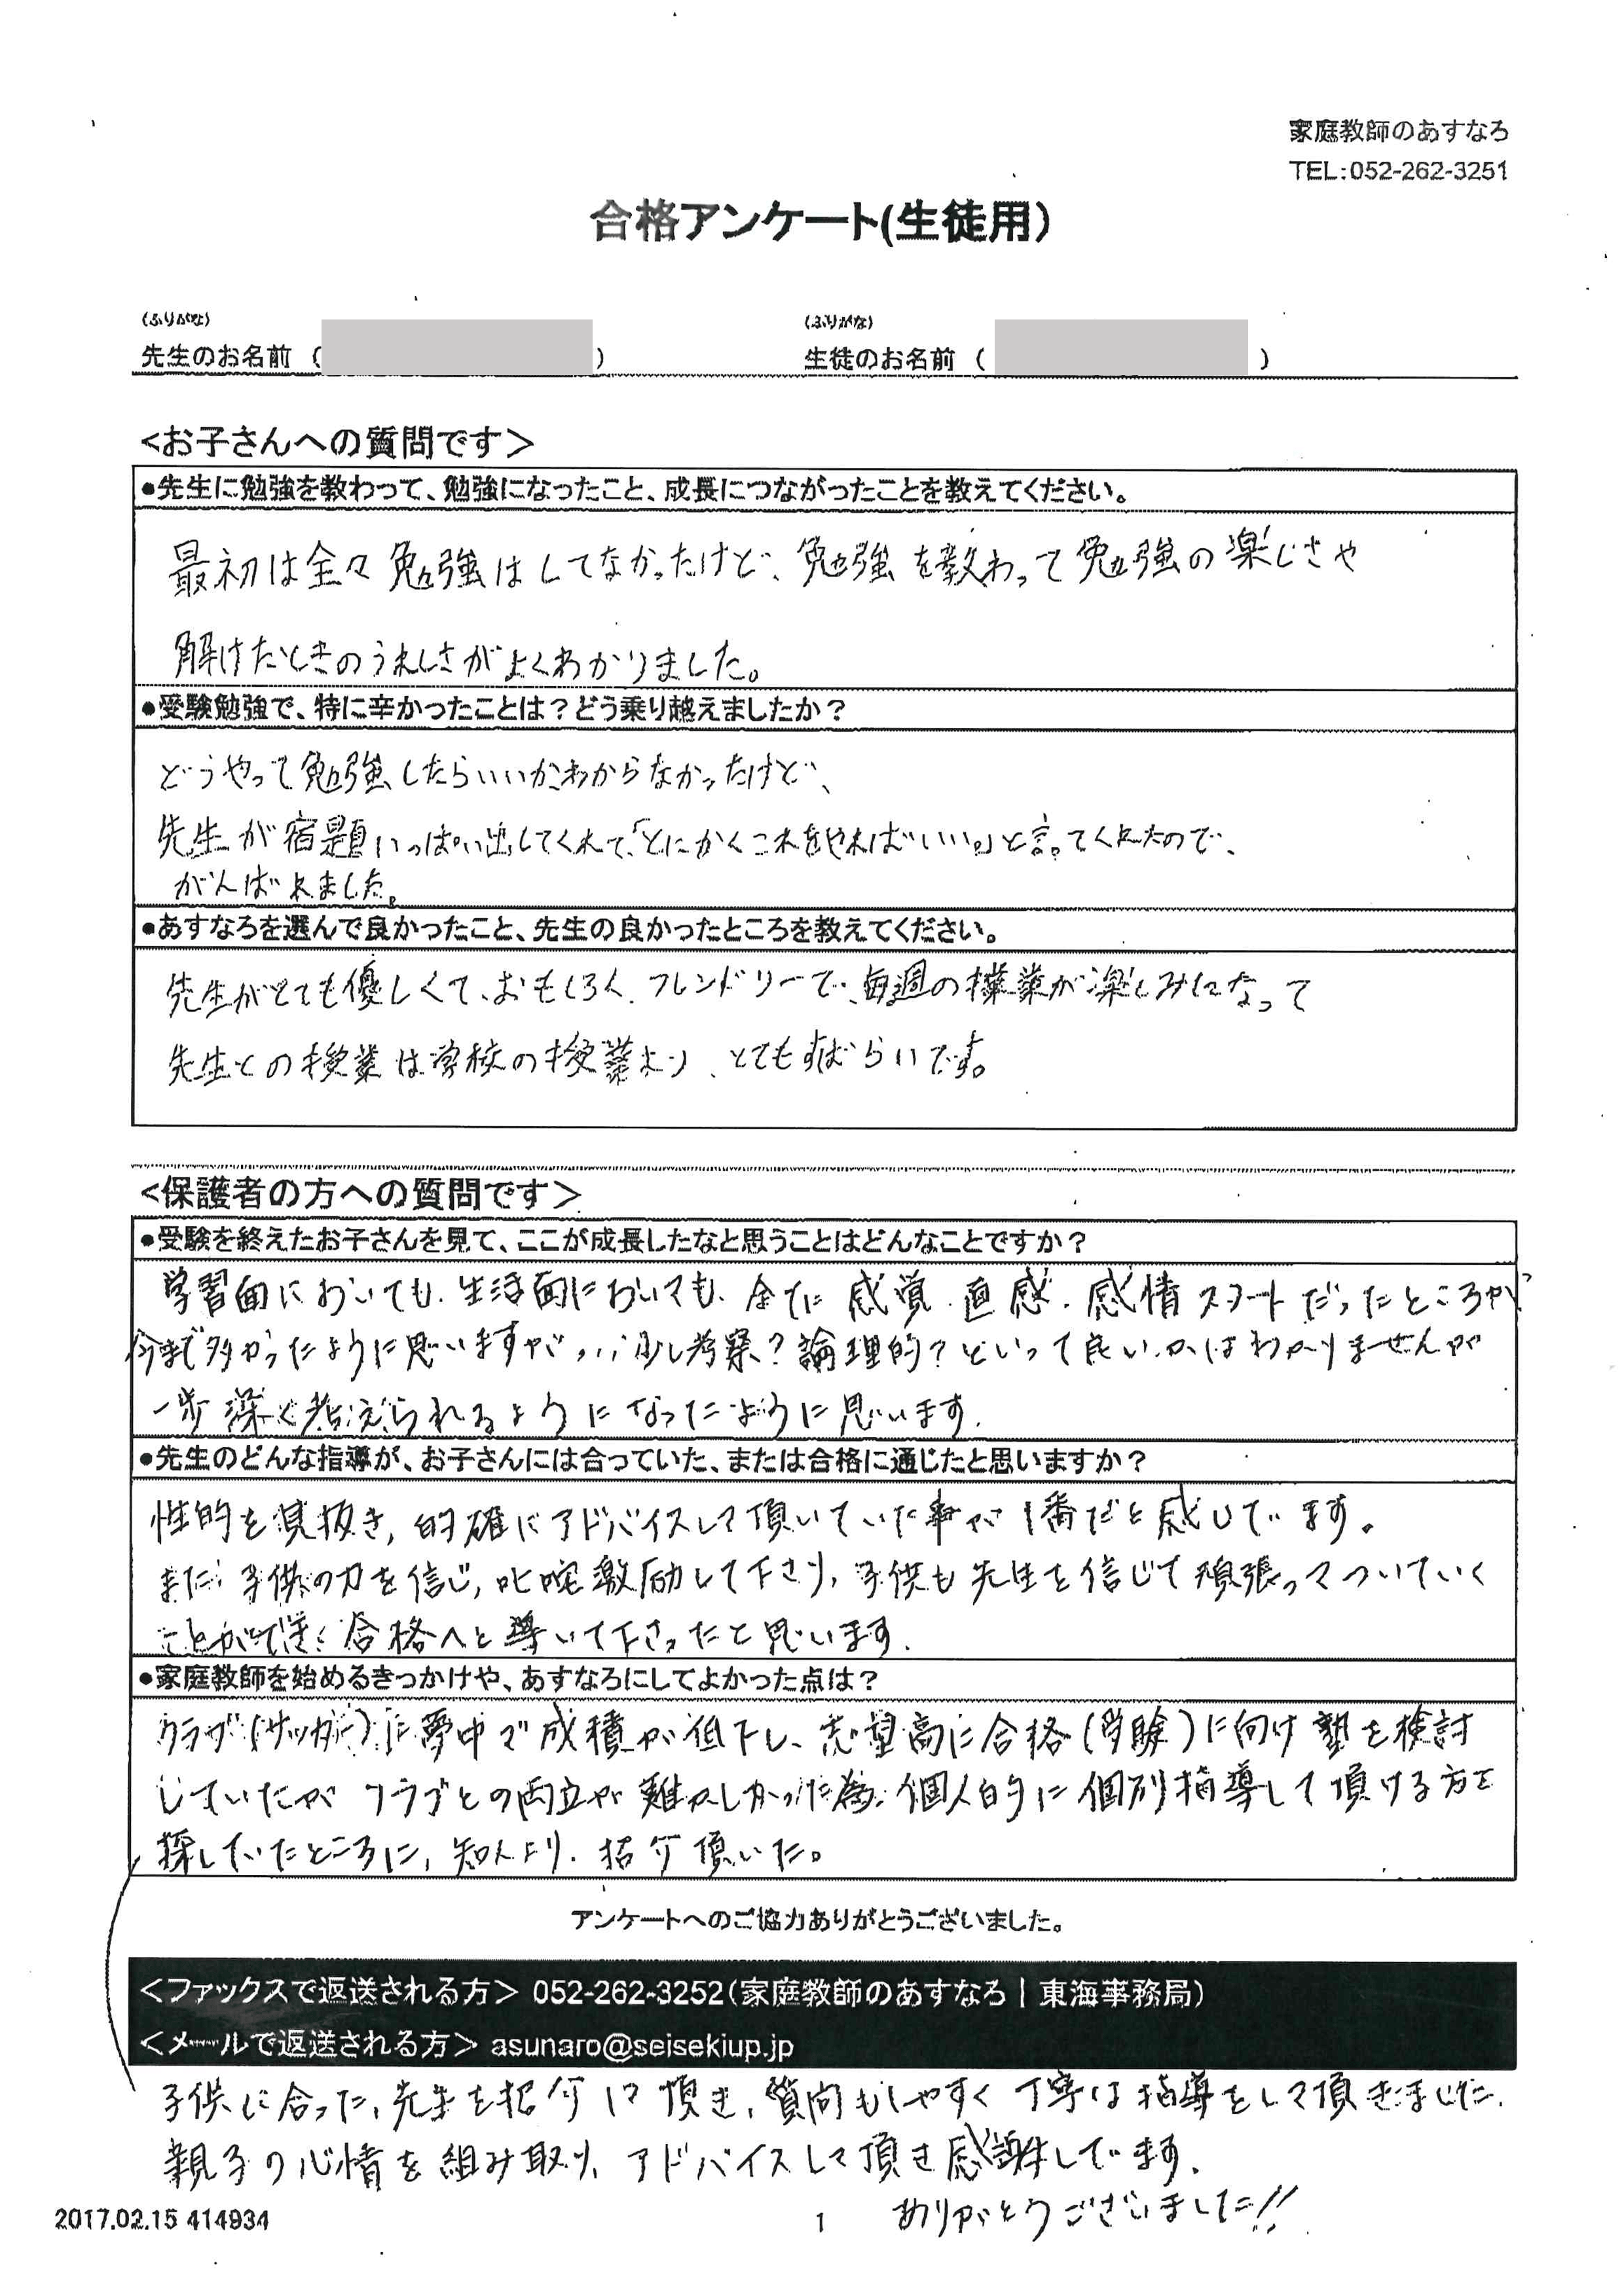 家庭教師のあすなろ
TEL:052-262-3251
合格アンケート(生徒用)
(ふりがな)
先生のお名前 ( )
(ふりがな)
生徒のお名前 ( )
<お子さんへの質問です>
●先生に勉強を教わって、勉強になったこと、成長につながったことを教えてください。
最初は全々勉強はしてなかったけど、勉強を教わって勉強の楽しさや
解けたときのうれしさがよくわかりました。
●受験勉強で、特に辛かったことは?どう乗り越えましたか?
どうやって勉強したらいいかわからなかったけど、
先生が宿題いっぱい出してくれて、「とにかくこれをやればいい。」と言ってくれたので、
がんばれました。
●あすなろを選んで良かったこと、先生の良かったところを教えてください。
先生がとても優しくて、おもしろく、フレンドリーで、毎週の授業が楽しみになって
先生との授業は学校の授業より、とてもすばらいです。
<保護者の方への質問です>
●受験を終えたお子さんを見て、ここが成長したなと思うことはどんなことですか?
学習面においても、生活面においても、全てに感覚・直感・感情スタートだったところが
今まで多かったように思いますが、、、少し考察?論理的?といって良いかはわかりませんが
一歩深く考えられるようになったように思います。
●先生のどんな指導が、お子さんには合っていた、または合格に通じたと思いますか?
性的を見抜き、的確にアドバイスして頂いていた事が1番だと感じています。
また、子供の力を信じ、叱咤激励して下さり、子供も先生を信じて頑張ってついていく
ことができ、合格へと導いて下さったと思います。
●家庭教師を始めるきっかけや、あすなろにしてよかった点は?
クラブ(サッカー)に夢中で成積が低下し、志望高に合格(受験)に向け塾を検討
していたが クラブとの両立が難かしかった為、個人的に個別指導して頂ける方を
探していたところに、知人より、招介頂いた。
アンケートへのご協力ありがとうございました。
<ファックスで返送される方> 052-262-3252(家庭教師のあすなろ | 東海事務局)
<メールで返送される方> asunaro@seisekiup.jp
子供に合った、先生を招介して頂き、質問もしやすく 丁寧な指導をして頂きました。
親子の心情を組み取り、アドバイスして頂き感謝しています。
ありがとうございました!!
2017.02.15 414934
1